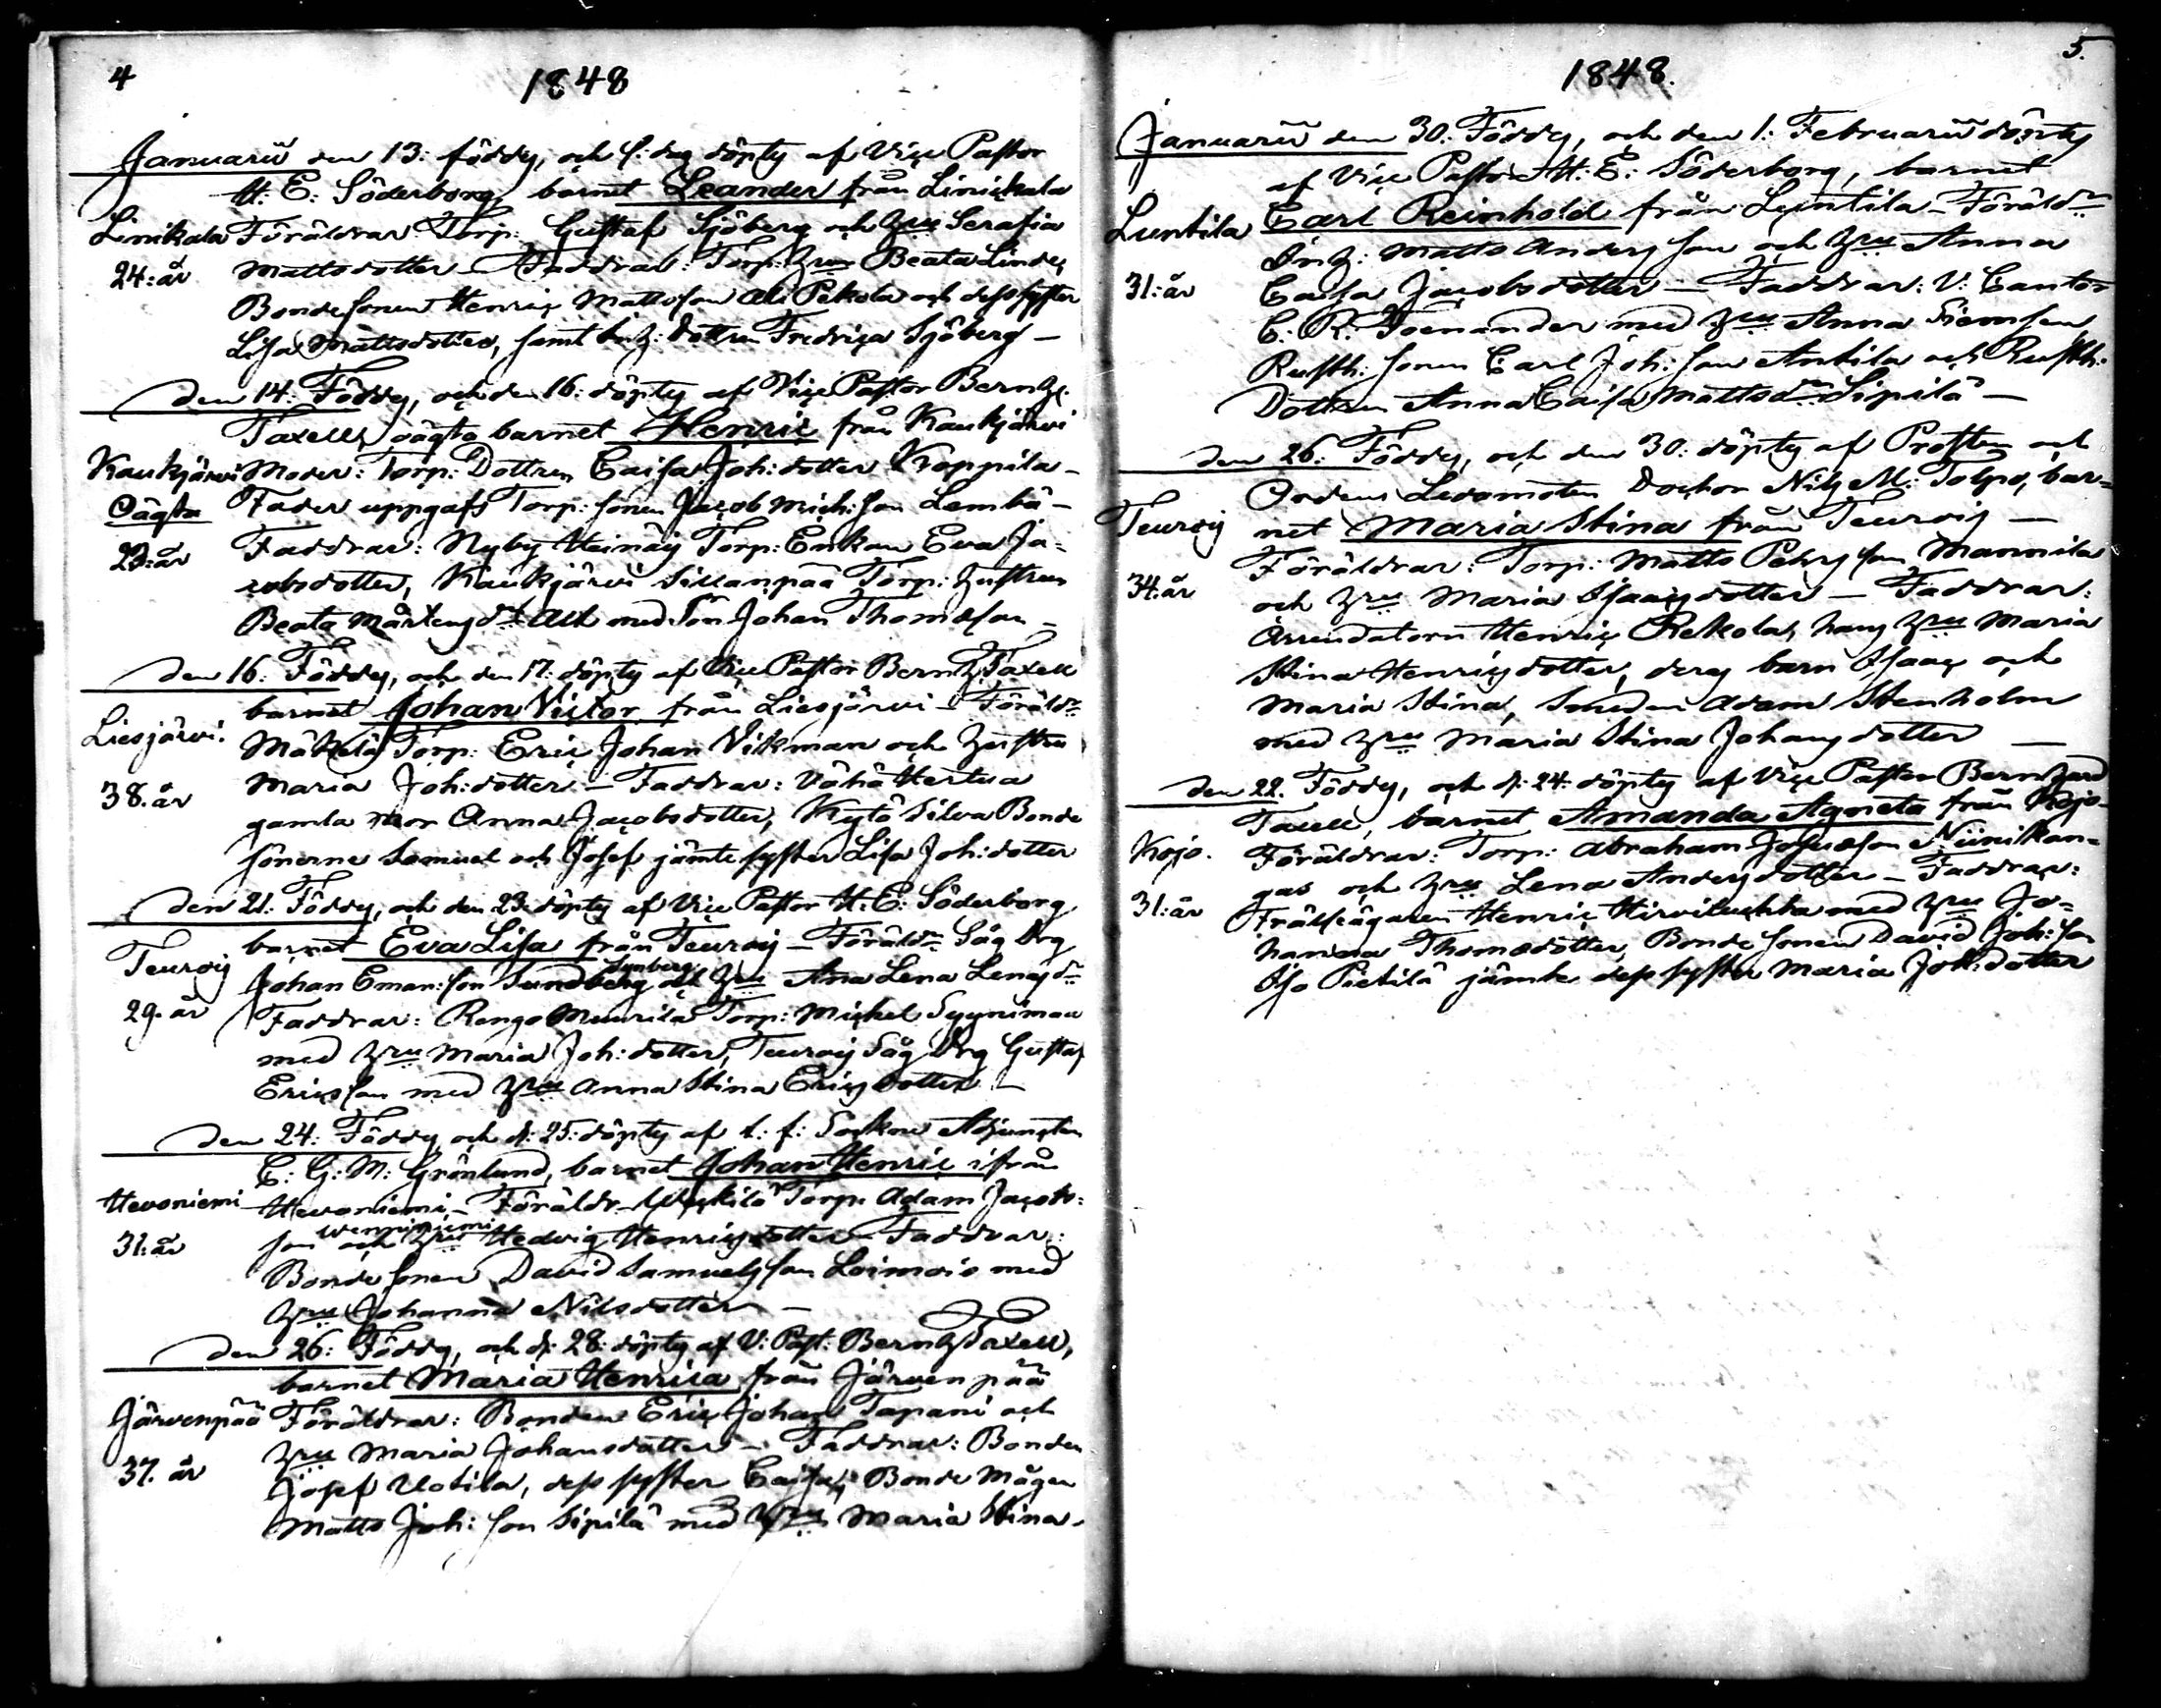 4
1848
Januarii den 13: föddes, och s: dag döptes af Vice Pastor
H: E: Söderborg, barnet Leander från Linickala
Linikala Föräldrar Torp: Gustaf Sjöberg och Hru Serafia
24: år Mattsdotter – Faddrar: Torp: Hru Beata Linde,
Bondesonen Henric Mattsson Ali Pekola och dess syster
Lisa Mattsdotter, samt Inh: dottren Fredrica Sjöberg –
den 14: Föddes, och den 16: döptes af Vice Pastor Bernh:
Taxell, oägta barnet Henric från Kaukjärvi
Kaukjärvi Moder: Torp: Dottren Caisa Joh: dotter Koppila –
Oägta Fader uppgafs Torp: sonen Jacob Mich: son Lembä –
23: år Faddrar: Nyby Heinäis Torp: Enkan Eva Ja=
cobsdotter, Kaukjärvi Sillanpää Torp: Hustrun
Beata Mårtens dr All med Son Johan Thomasson –
den 16: Föddes, och den 17: döptes af Vice Pastor Bernh Taxell
barnet Johan Victor från Liesjärvi – Föräldr
Liesjärvi. Mäkelä Torp: Eric Johan Vikman och Hustru
38. år Maria Joh: dotter – Faddrar: Vähä Hertua
gamla mor Anna Jacobsdotter, Kytö Silva Bonde
sönerne Samuel och Josef jämte syster Lisa Joh: dotter
den 21: Föddes, och den 23: döptes af Vice Pastor H: E: Söderborg
barnet Eva Lisa från Teurois – Föräldr Såg Drg
Teurois
Synberg
Johan Eman: son Sundberg och Hru Ana Lena Lenas dr
29. år Faddrar: Rengo Muurila Torp: Michel Syynimaa
med Hru Maria Joh: dotter, Teurois Såg Drg Gustaf
Ericsson med Hru Anna Stina Ericsdotter –
den 24: Föddes och d: 25: döptes af t: f: Sockne Adjuncten
C: G: M: Grönlund, barnet Johan Henric ifrån
Hevoniemi Hevoniemi – Föräldr – Uuskilä Torp: Adam Jacobs=
Wenniniemi
31: år son och Hru Hedvig Henricsdotter Faddrar:
Bonde sonen David Samuelsson Loimois med
Hru Johanna Nilsdotter –
den 26: Föddes, och d: 28: döptes af V: Past: Bernh Taxell,
barnet Maria Henrica från Järvenpää
Järvenpää Föräldrar: Bonden Eric Johan Tapani och
Hru Maria Johansdotter – Faddrar: Bonden
37. år Josef Uotila, dess syster Caisa, Bonde Mågen
Matts Joh: son Sipilä med Hru Maria Stina –
5.
1848.
Januarii den 30: Föddes, och den 1: Februarii döptes
af Vice Pastor H: E: Söderborg, barnet
Luntila Carl Reinhold från Luntila – Föräldr
Inh: Matts Anders son och Hru Anna
31: år Caisa Jacobsdotter – Faddrar: V: Cantor
C. R. Foenander med Hru Anna Simonsen,
Rusth: sonen Carl Joh: son Antila och Rusth:
Dottren Anna Caisa Mattsdr Sipilä –
den 26: Föddes, och den 30: döptes af Prosten och
Ordens Ledamoten Doctor Nils M: Tolpo, bar=
Teurois net Maria Stina från Teurois –
Föräldrar: Torp: Matts Pehrsson Mannila
34: år och Hru Maria Isaacsdotter – Faddrar:
Arrendatorn Henric Rekola, hans Hru Maria
Stina Henricsdotter, deras barn Isaac och
Maria Stina, Smeden Adam Stenholm
med Hru Maria Stina Johansdotter –
den 22. Föddes, och d: 24: döptes af Vice Pastor Bernhard
Taxell, barnet Amanda Agneta från Kojo –
Kojo. Föräldrar: Torp: Abraham Josuason Niinikan=
gas och Hru Lena Andersdotter – Faddrar:
31: år Frälseägaren Henric Hirviluhta med Hru Jo=
hanna Thomasdotter, Bonde sonen David Joh: son
Iso Pietilä jämte dess syster Maria Joh: dotter